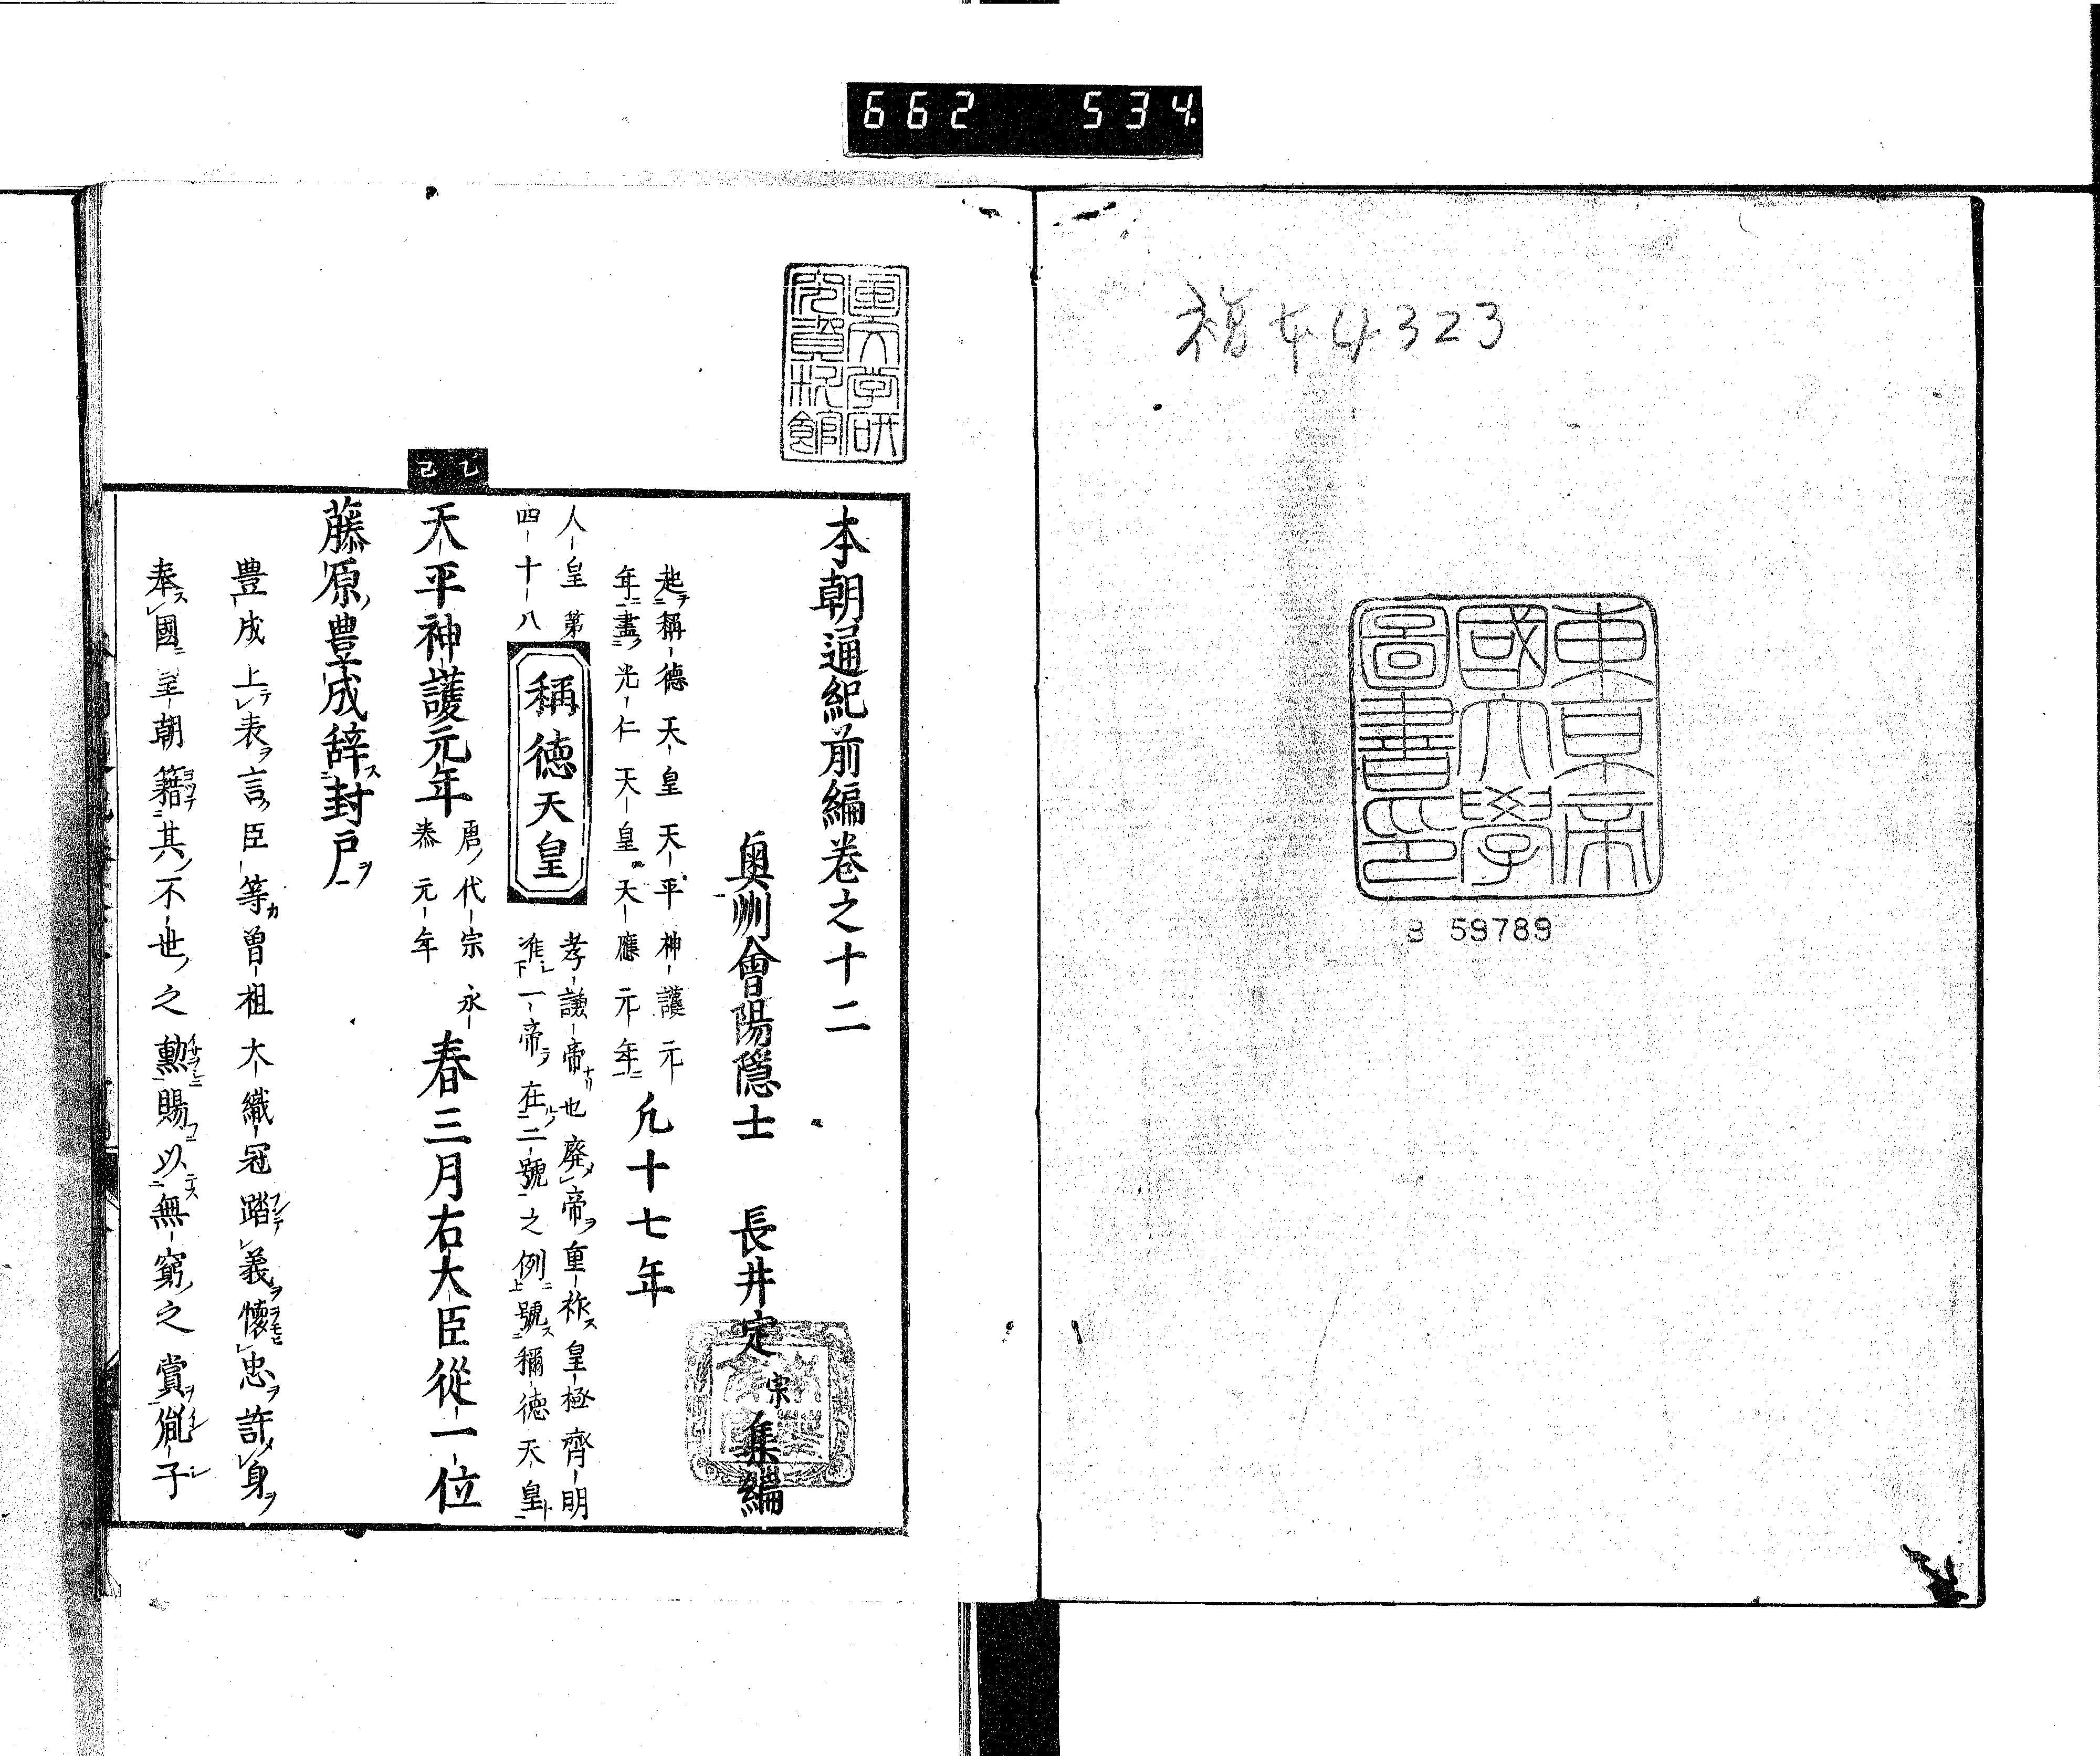 662 534.
稽古4323
東京帝
國大學
圖書印
B 59789
国文学研
究資料館
本朝通紀前編卷之十二
奥州會陽隱士 長井定宗集編
起稱德天皇天平神護元
年盡光仁天皇天應元年
凡十七年
人皇第
四十八
稱德天皇
孝謙帝也廢帝重祚皇極齊明
准一帝在二號之例號稱德天皇
乙巳
天平神護元年
唐代宗永
泰元年
春三月右大臣從一位
藤原豊成辞封戸
豊成上表言臣等曽祖大織冠踏義懷忠許身
奉國皇朝籍其不世之勲賜以無窮之賞胤子